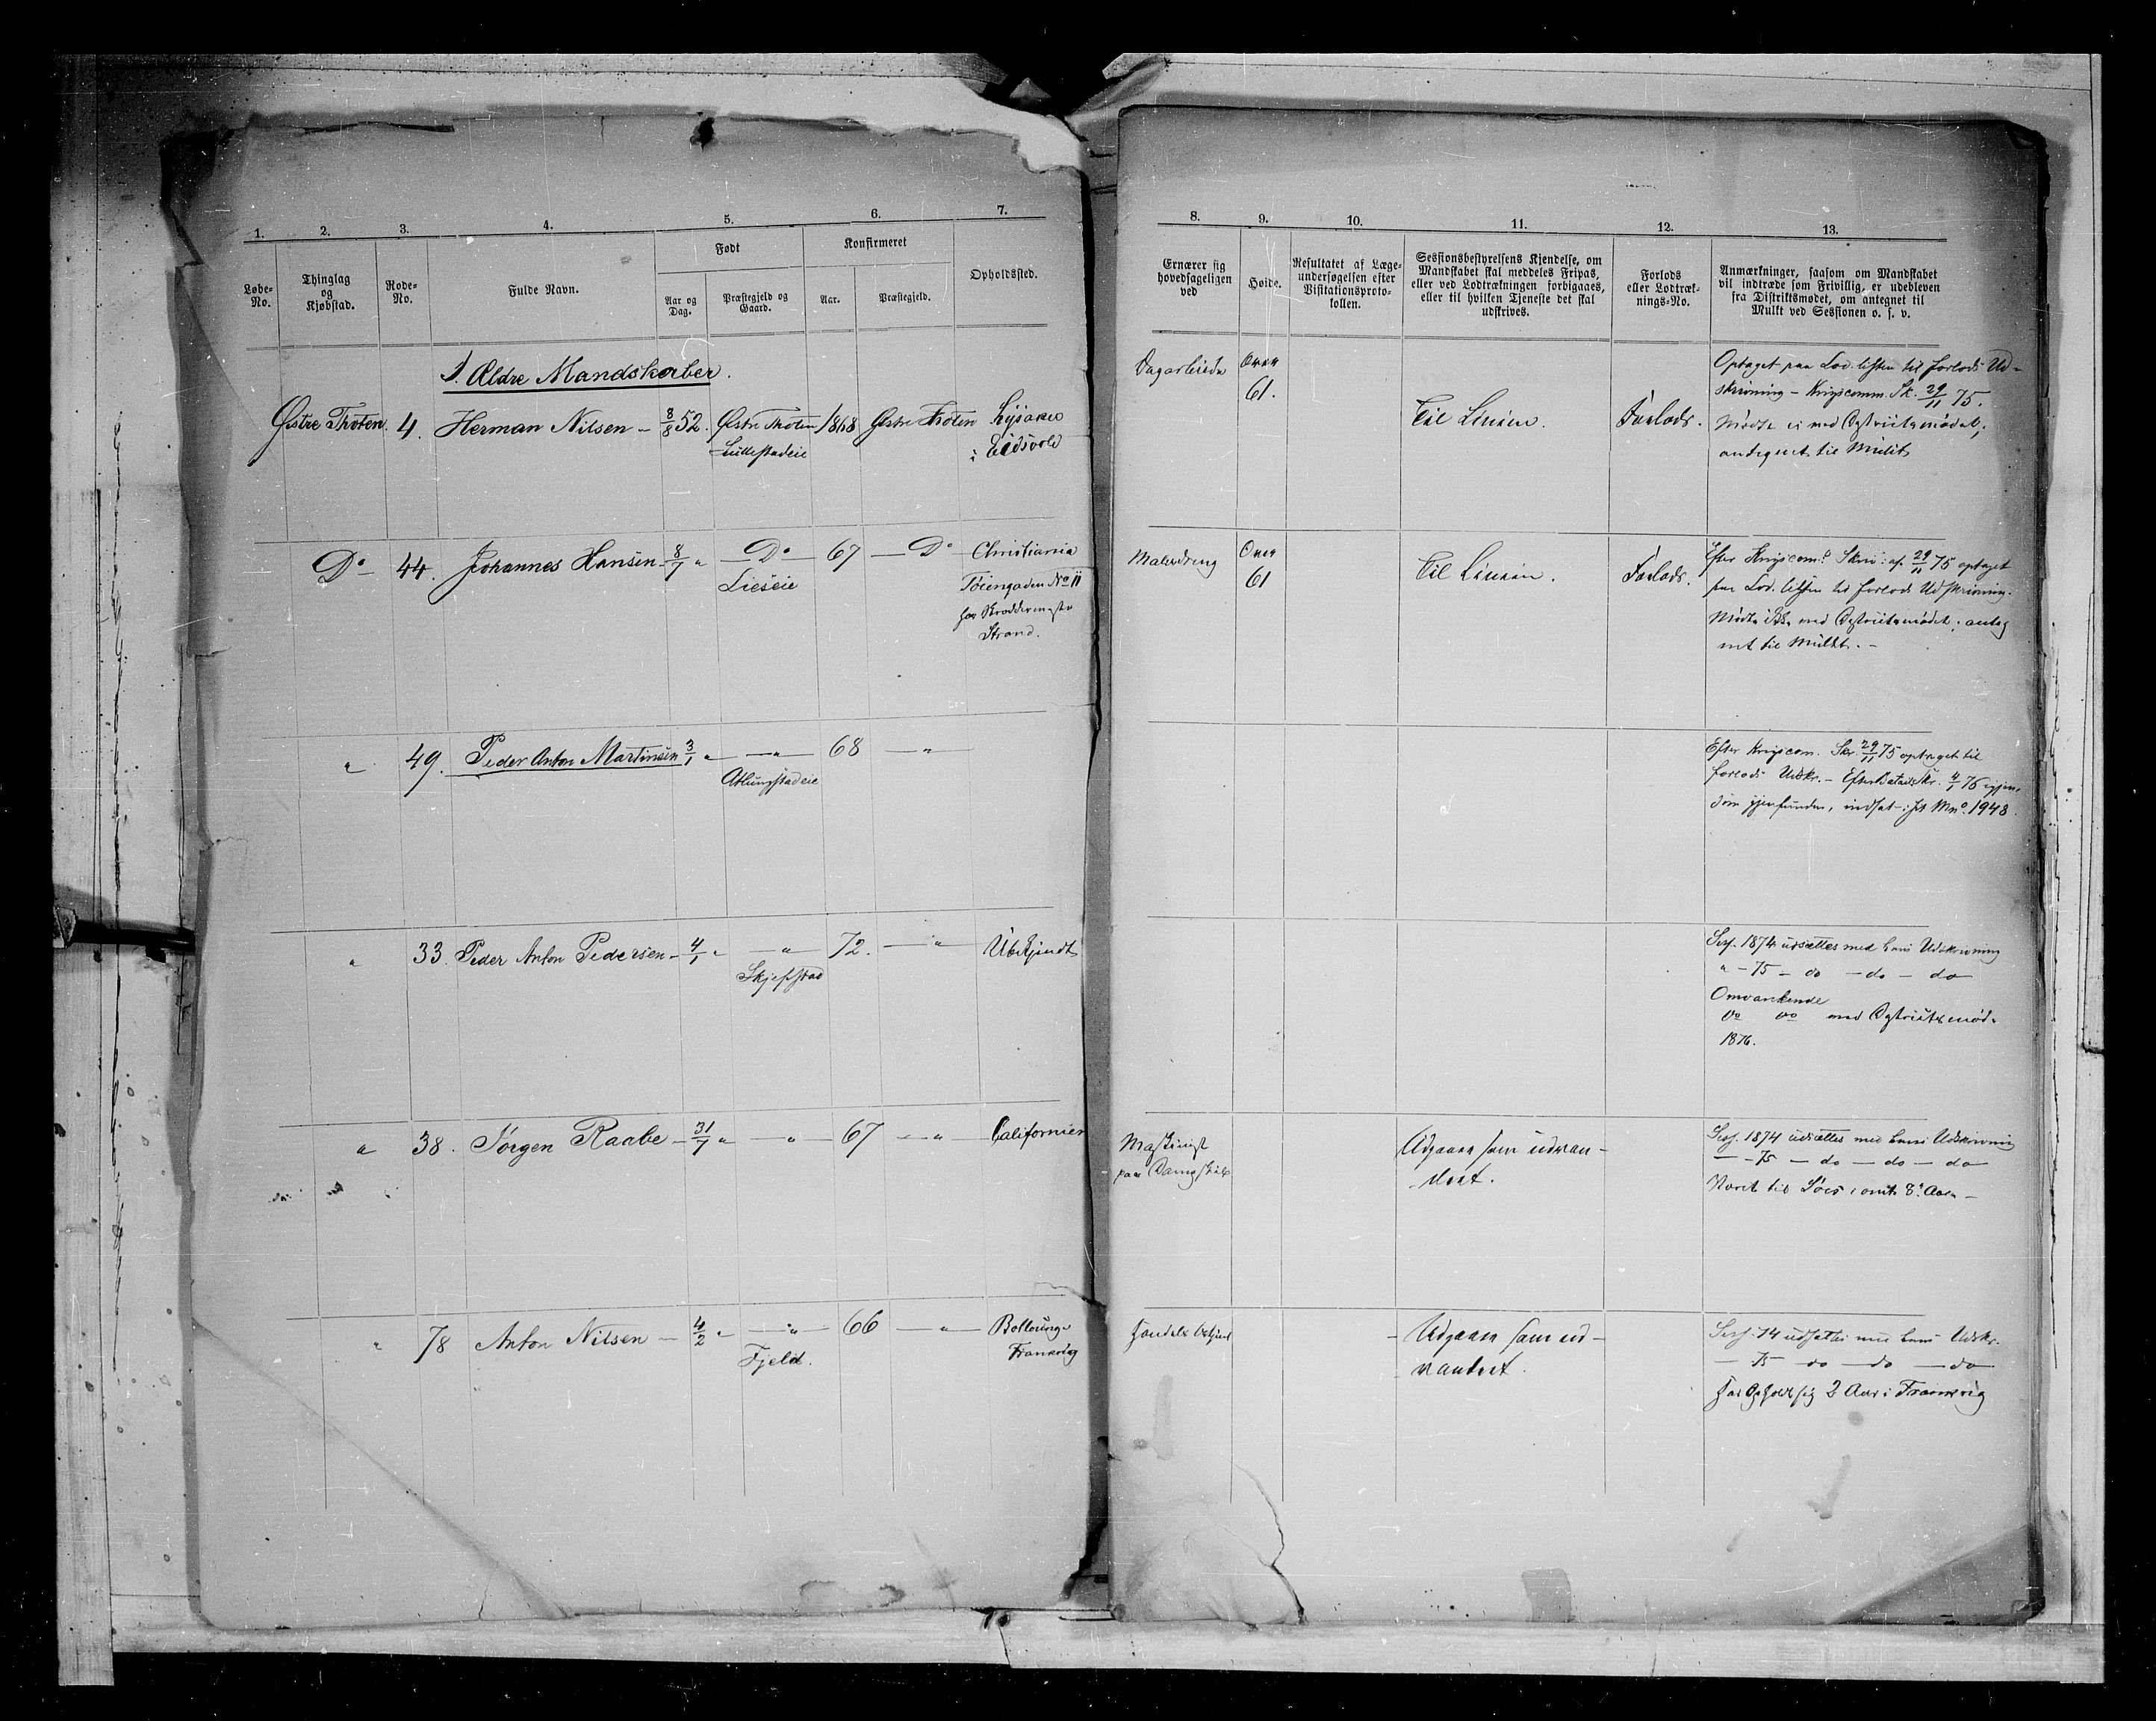 1.
2.
3.
4.
5.
6.
7.
Løbe-
No.
Thinglag
og
Kjøbstad.
Rode-
No.
Fulde Navn.
Født
Aar og
Dag.
Præstegjeld og
Gaard.
Konfirmeret
Aar.
Præstegjeld.
Opholdssted.
1. Ældre Mandskaber.
Østre Thoten. 4. Herman Nilsen - 8/8 52. Østre Thoten 1868 Østre Thoten
Lillestadeie
i Eidsvold
Do 44. Johannes Hansen - 8/7 " - Do - 67 - Do Christiania
Lieseie
Tøiengaden No 11
hos Skræddermester
Strand.
" 49. Peder Anton Martinsen 3/1 " - " - 68 - " -
" 33. Peder Anton Pedersen - 4/1 " - " - 72. - " - Ubekjendt
Skjefstad
" 38. Jørgen Raabe - 31/7 " - " - 67 - " - Californien
" 78 Anton Nilsen - 4/2 " - " - 66 - " -
Fjeld.
Frankrig
8.
9.
10.
11.
12.
13.
Ernærer sig
hovedsageligen
ved
Høide.
Resultatet af Læge-
undersøgelsen efter
Visitationsproto-
kollen.
Sessionsbestyrelsens Kjendelse, om
Mandskabet skal meddeles Fripas,
eller ved Lodtrækningen forbigaaes,
eller til hvilken Tjeneste det skal
udskrives.
Forlods
eller Lodtræk-
nings-No.
Anmærkninger, saasom om Mandskabet
vil indtræde som Frivillig, er udebleven
fra Distriktsmødet, om antegnet til
Mulkt ved Sessionen o. s. v.
Dagarbeide
Over
61.
Til Linien.
Forlods.
Optaget paa Lod. listen til forlods Ud-
skrivning - Krigscomm. Sk. 29/11 75.
Mødte ei ved Distriktsmødet;
antegnet til Mulkt
Malerdreng
Over
61
Til Linien.
Forlods.
Efter Krigscom.s Skriv: af 29/11 75 optaget
paa Lod. listen til forlods Udskrivning.
Mødte ikke ved Distriktsmødet; anteg
net til Mulkt. -
Efter Krigscom. Skr. 29/11 75 optaget til
forlods Udskr. - Efter Batails Skr. 4/1 76 igjen,
som gjenfunden, indsat i Mno. 1948
Sess. 1874 udsættes med hans Udskrivning
" - 75 - do - do - do
Omvankende
do do ved Distriktsmøde
1876.
Maskinist
paa Dampskib
Udgaaer som udvan-
dret.
Sess. 1874 udsættes med hans Udskrivning
- - 75 - do - do - do
Været til Søes omt. 8 Aar -
Handelsbetjent
- Udgaaer som ud-
- vandret.
Sess. 74 udsættes med hans Udskr.
- 75 - do - do - do
har opholdt sig 2 Aar i Frankrig